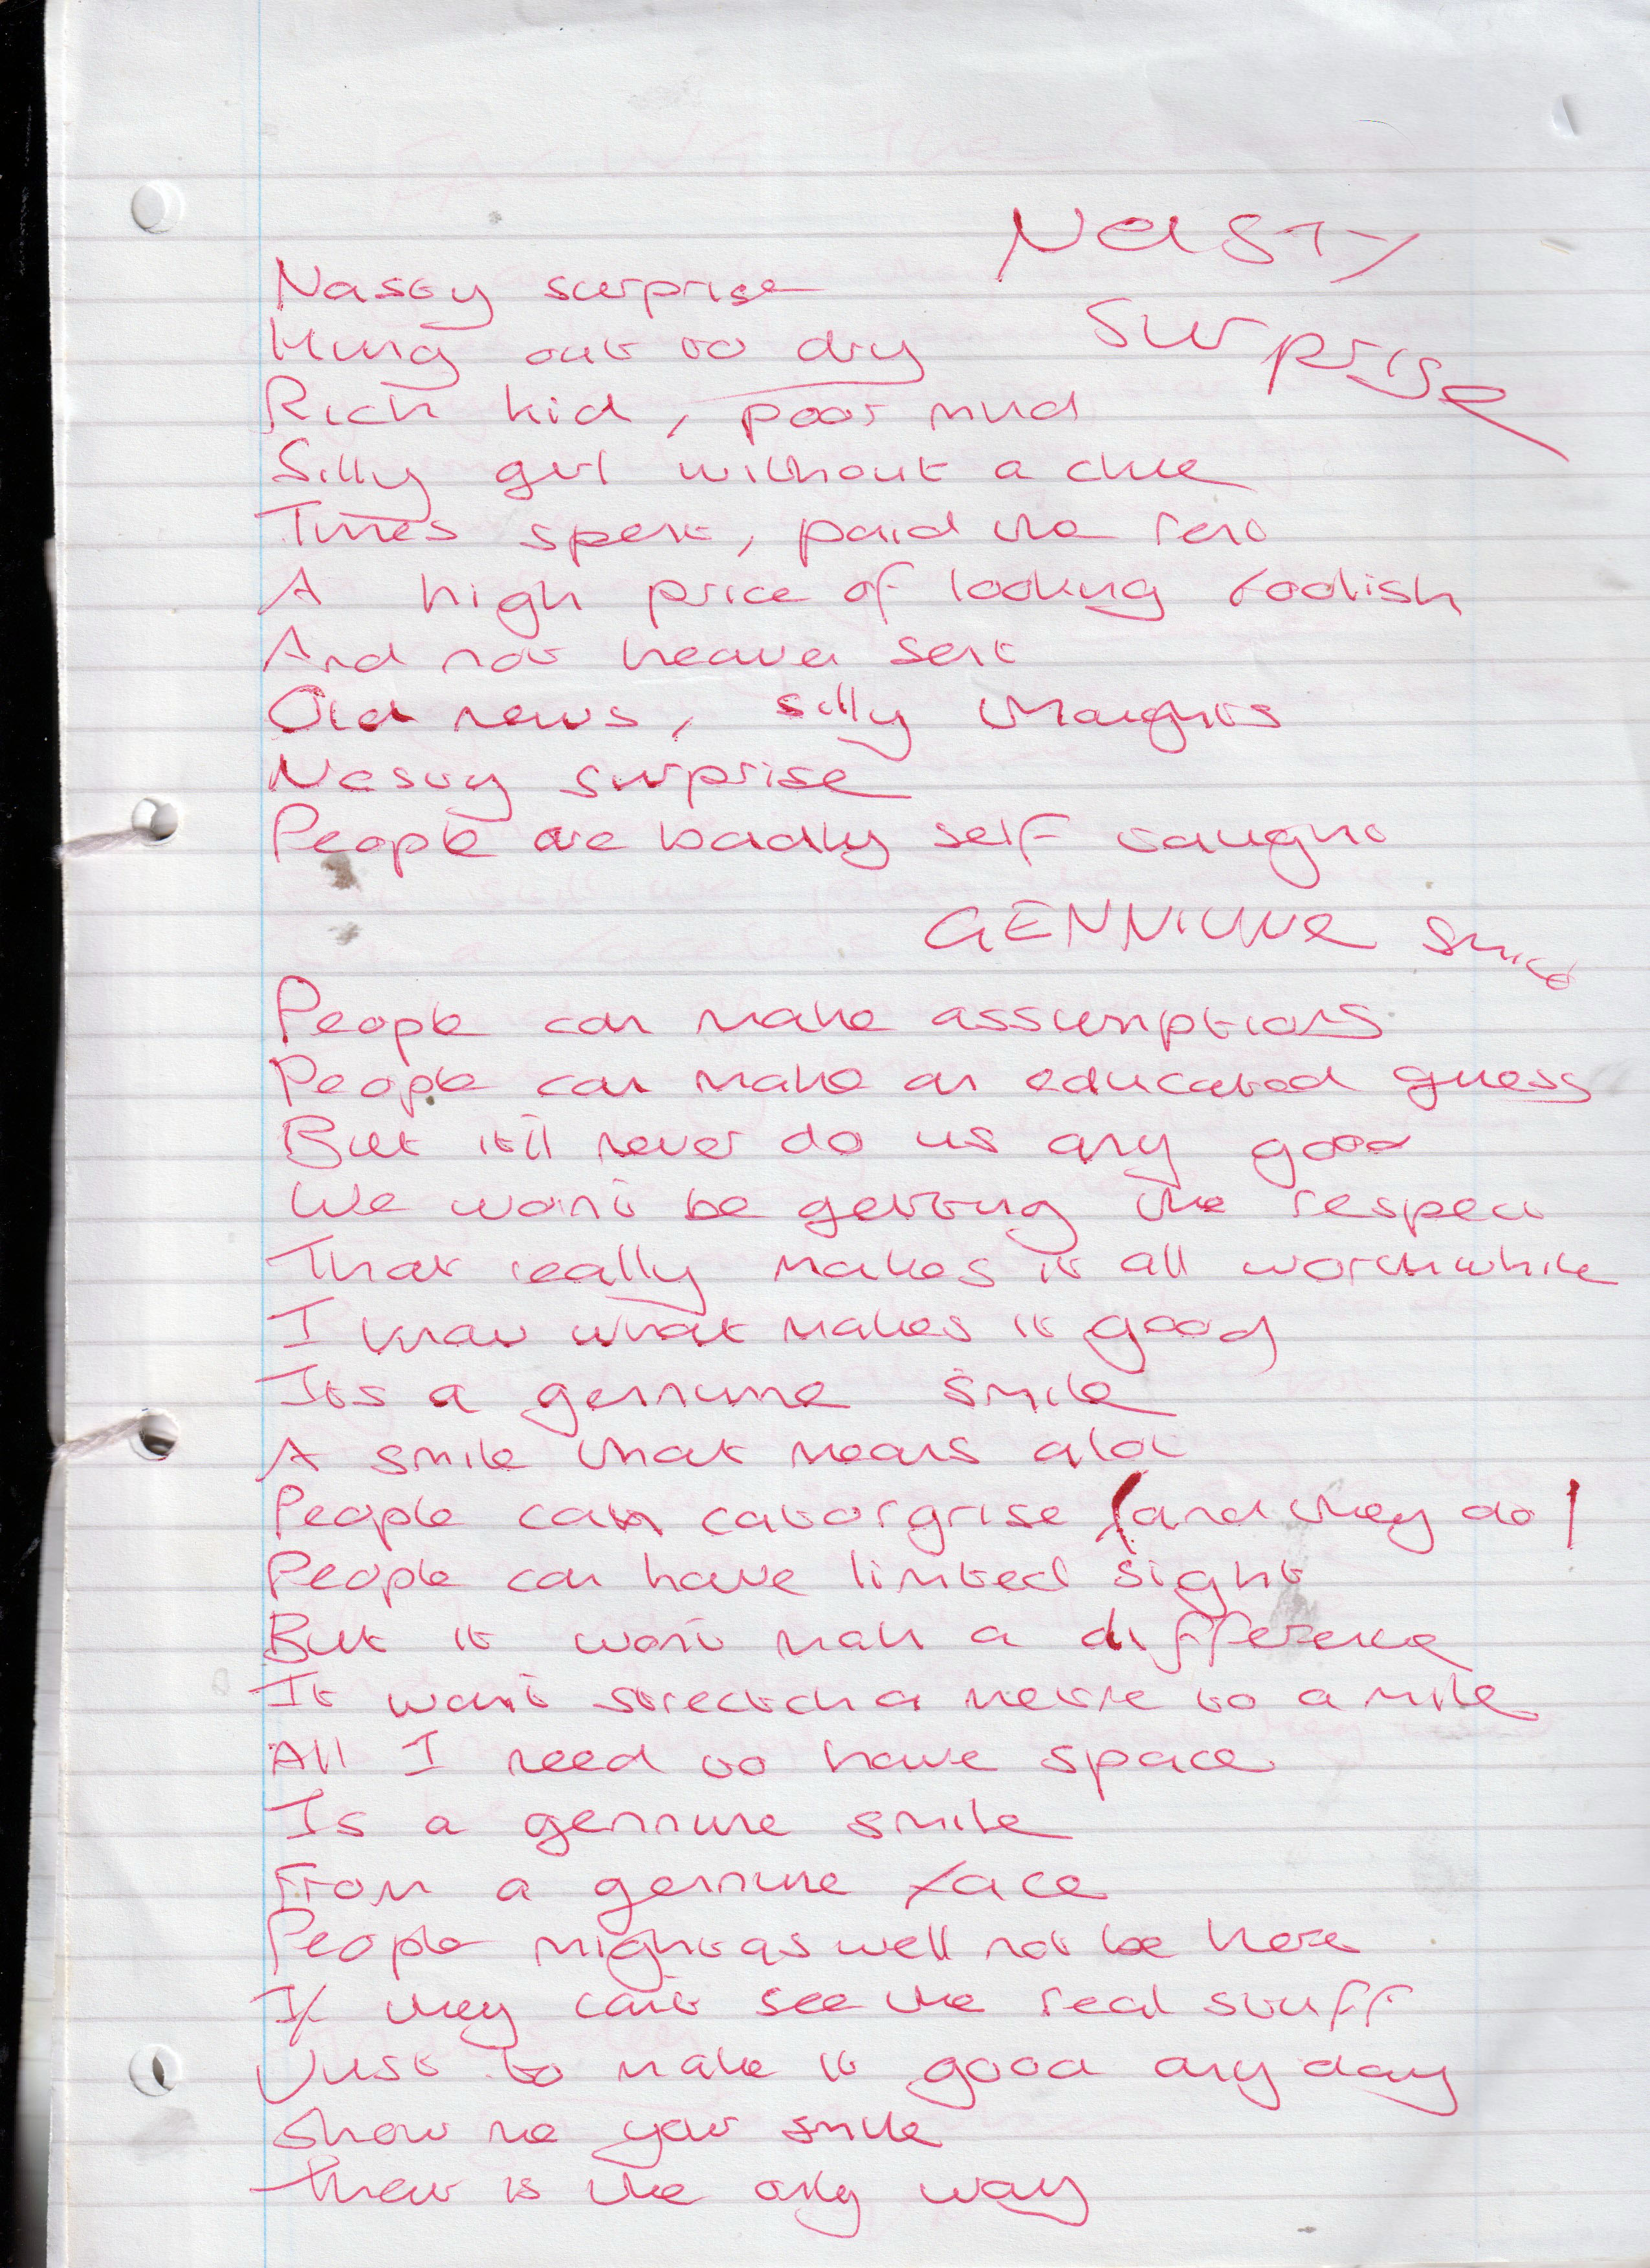 Nasty
Surprise
Nasty surprise
Hung out to dry
Rich kid, poor mind
Silly girl without a clue
Times spent, paid the rent
A high price of looking foolish
And not heaven sent
Old news, silly thoughts
Nasty surprise
People are badly self taught
GENNIUNE Smile
People can make assumptions
People can make an educated guess
But it'll never do us any good
We won't be getting the respect
That really makes it all worthwhile
I know what makes it good
Its a gennune smile
A smile that means alot
People can catorgrise (and they do)
People can have limited sight
But it won't mak a difference
It won't strectch a metre to a mile
All I need to have space
Is a gennune smile
From a gennune face
People might as well not be here
If they can't see the real stuff
Just to make it good any day
Show me your smile
That is the only way